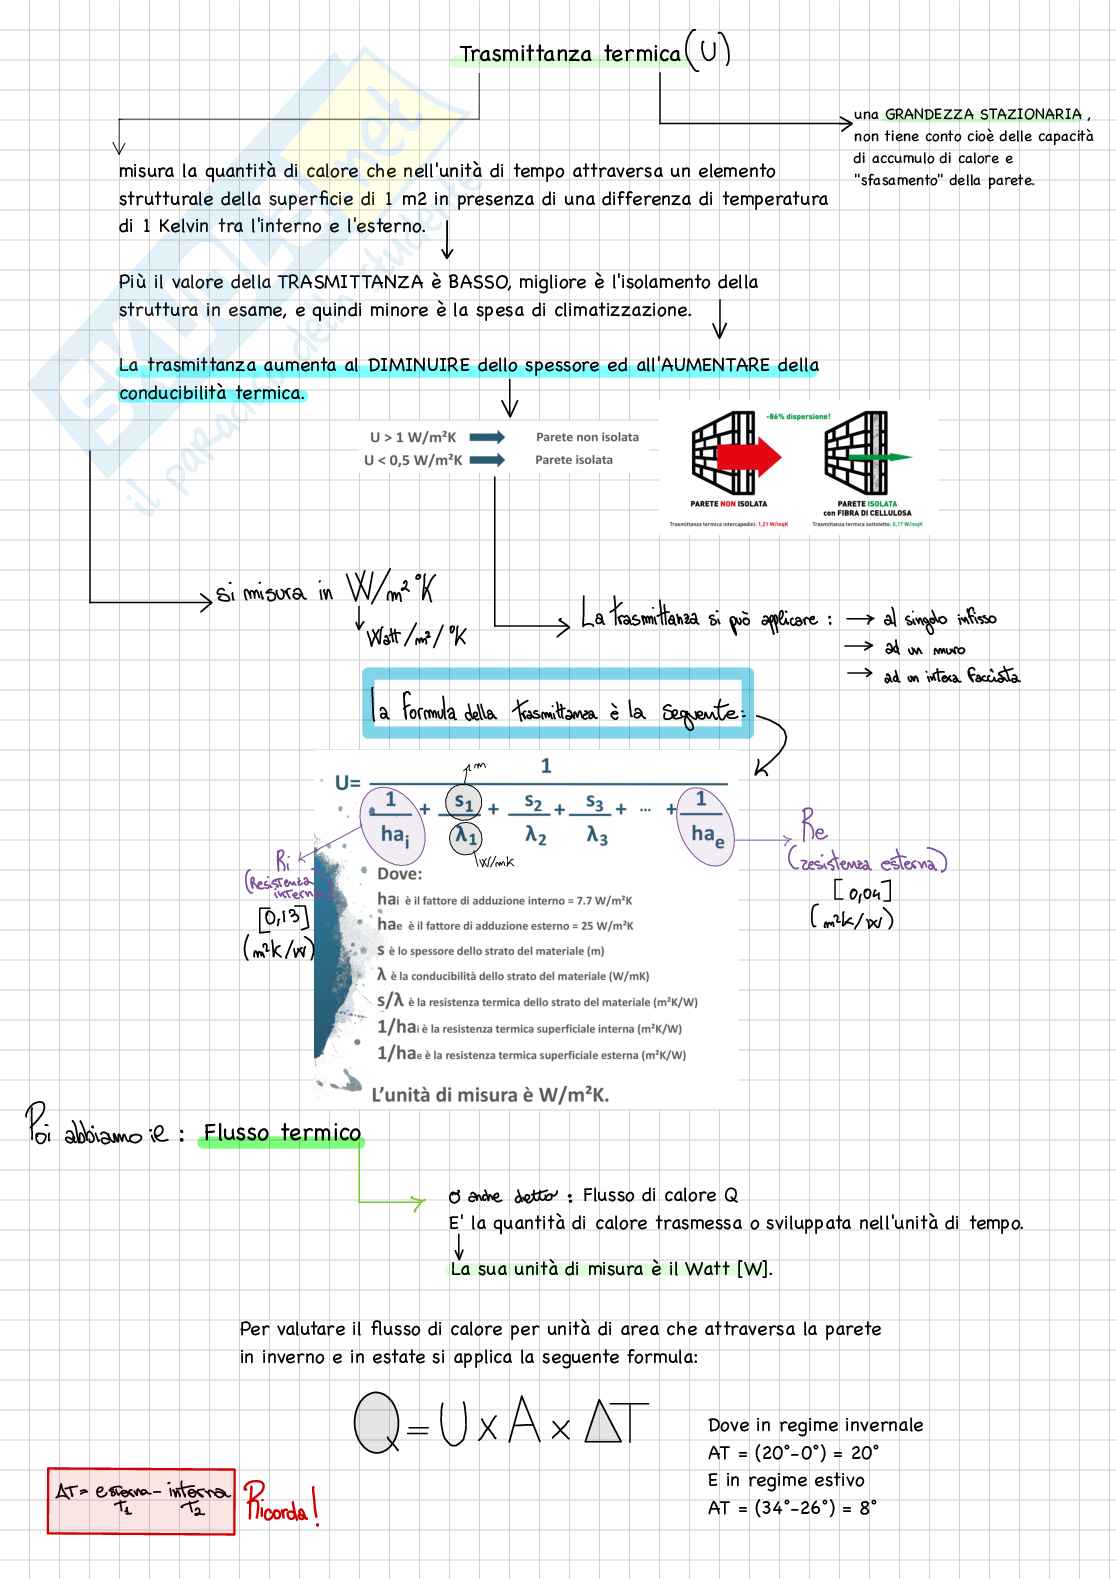 Trasmittanza termica (U)
una GRANDEZZA STAZIONARIA,
non tiene conto cioè delle capacità
di accumulo di calore e
"sfasamento" della parete.
misura la quantità di calore che nell'unità di tempo attraversa un elemento
strutturale della superficie di 1 m2 in presenza di una differenza di temperatura
di 1 Kelvin tra l'interno e l'esterno.
Più il valore della TRASMITTANZA è BASSO, migliore è l'isolamento della
struttura in esame, e quindi minore è la spesa di climatizzazione.
La trasmittanza aumenta al DIMINUIRE dello spessore ed all'AUMENTARE della
conducibilità termica.
U > 1 W/m²K Parete non isolata
U < 0,5 W/m²K Parete isolata
-86% dispersione!
PARETE NON ISOLATA
Trasmittanza termica intercapedini: 1,21 W/mqK
PARETE ISOLATA
con FIBRA DI CELLULOSA
Trasmittanza termica sottotetto: 0,17 W/mqK
si misura in W/m² °K
Watt/m²/°K
La trasmittanza si può applicare : → al singolo infisso
→ ad un muro
→ ad un intera facciata
la formula della trasmittanza è la seguente:
m
U= 1
1 + s1 + s2 + s3 + ... + 1
hai λ1 λ2 λ3 hae
W/mK
Ri
(Resistenza
interna)
[0,13]
(m²K/W)
Re
(resistenza esterna)
[0,04]
(m²K/W)
Dove:
hai è il fattore di adduzione interno = 7.7 W/m²K
hae è il fattore di adduzione esterno = 25 W/m²K
s è lo spessore dello strato del materiale (m)
λ è la conducibilità dello strato del materiale (W/mK)
s/λ è la resistenza termica dello strato del materiale (m²K/W)
1/hai è la resistenza termica superficiale interna (m²K/W)
1/hae è la resistenza termica superficiale esterna (m²K/W)
L'unità di misura è W/m²K.
Poi abbiamo il : Flusso termico
o anche detto : Flusso di calore Q
E' la quantità di calore trasmessa o sviluppata nell'unità di tempo.
La sua unità di misura è il Watt [W].
Per valutare il flusso di calore per unità di area che attraversa la parete
in inverno e in estate si applica la seguente formula:
Q = U x A x ΔT
Dove in regime invernale
AT = (20°-0°) = 20°
E in regime estivo
AT = (34°-26°) = 8°
ΔT = esterna - interna
T1 T2
Ricorda!